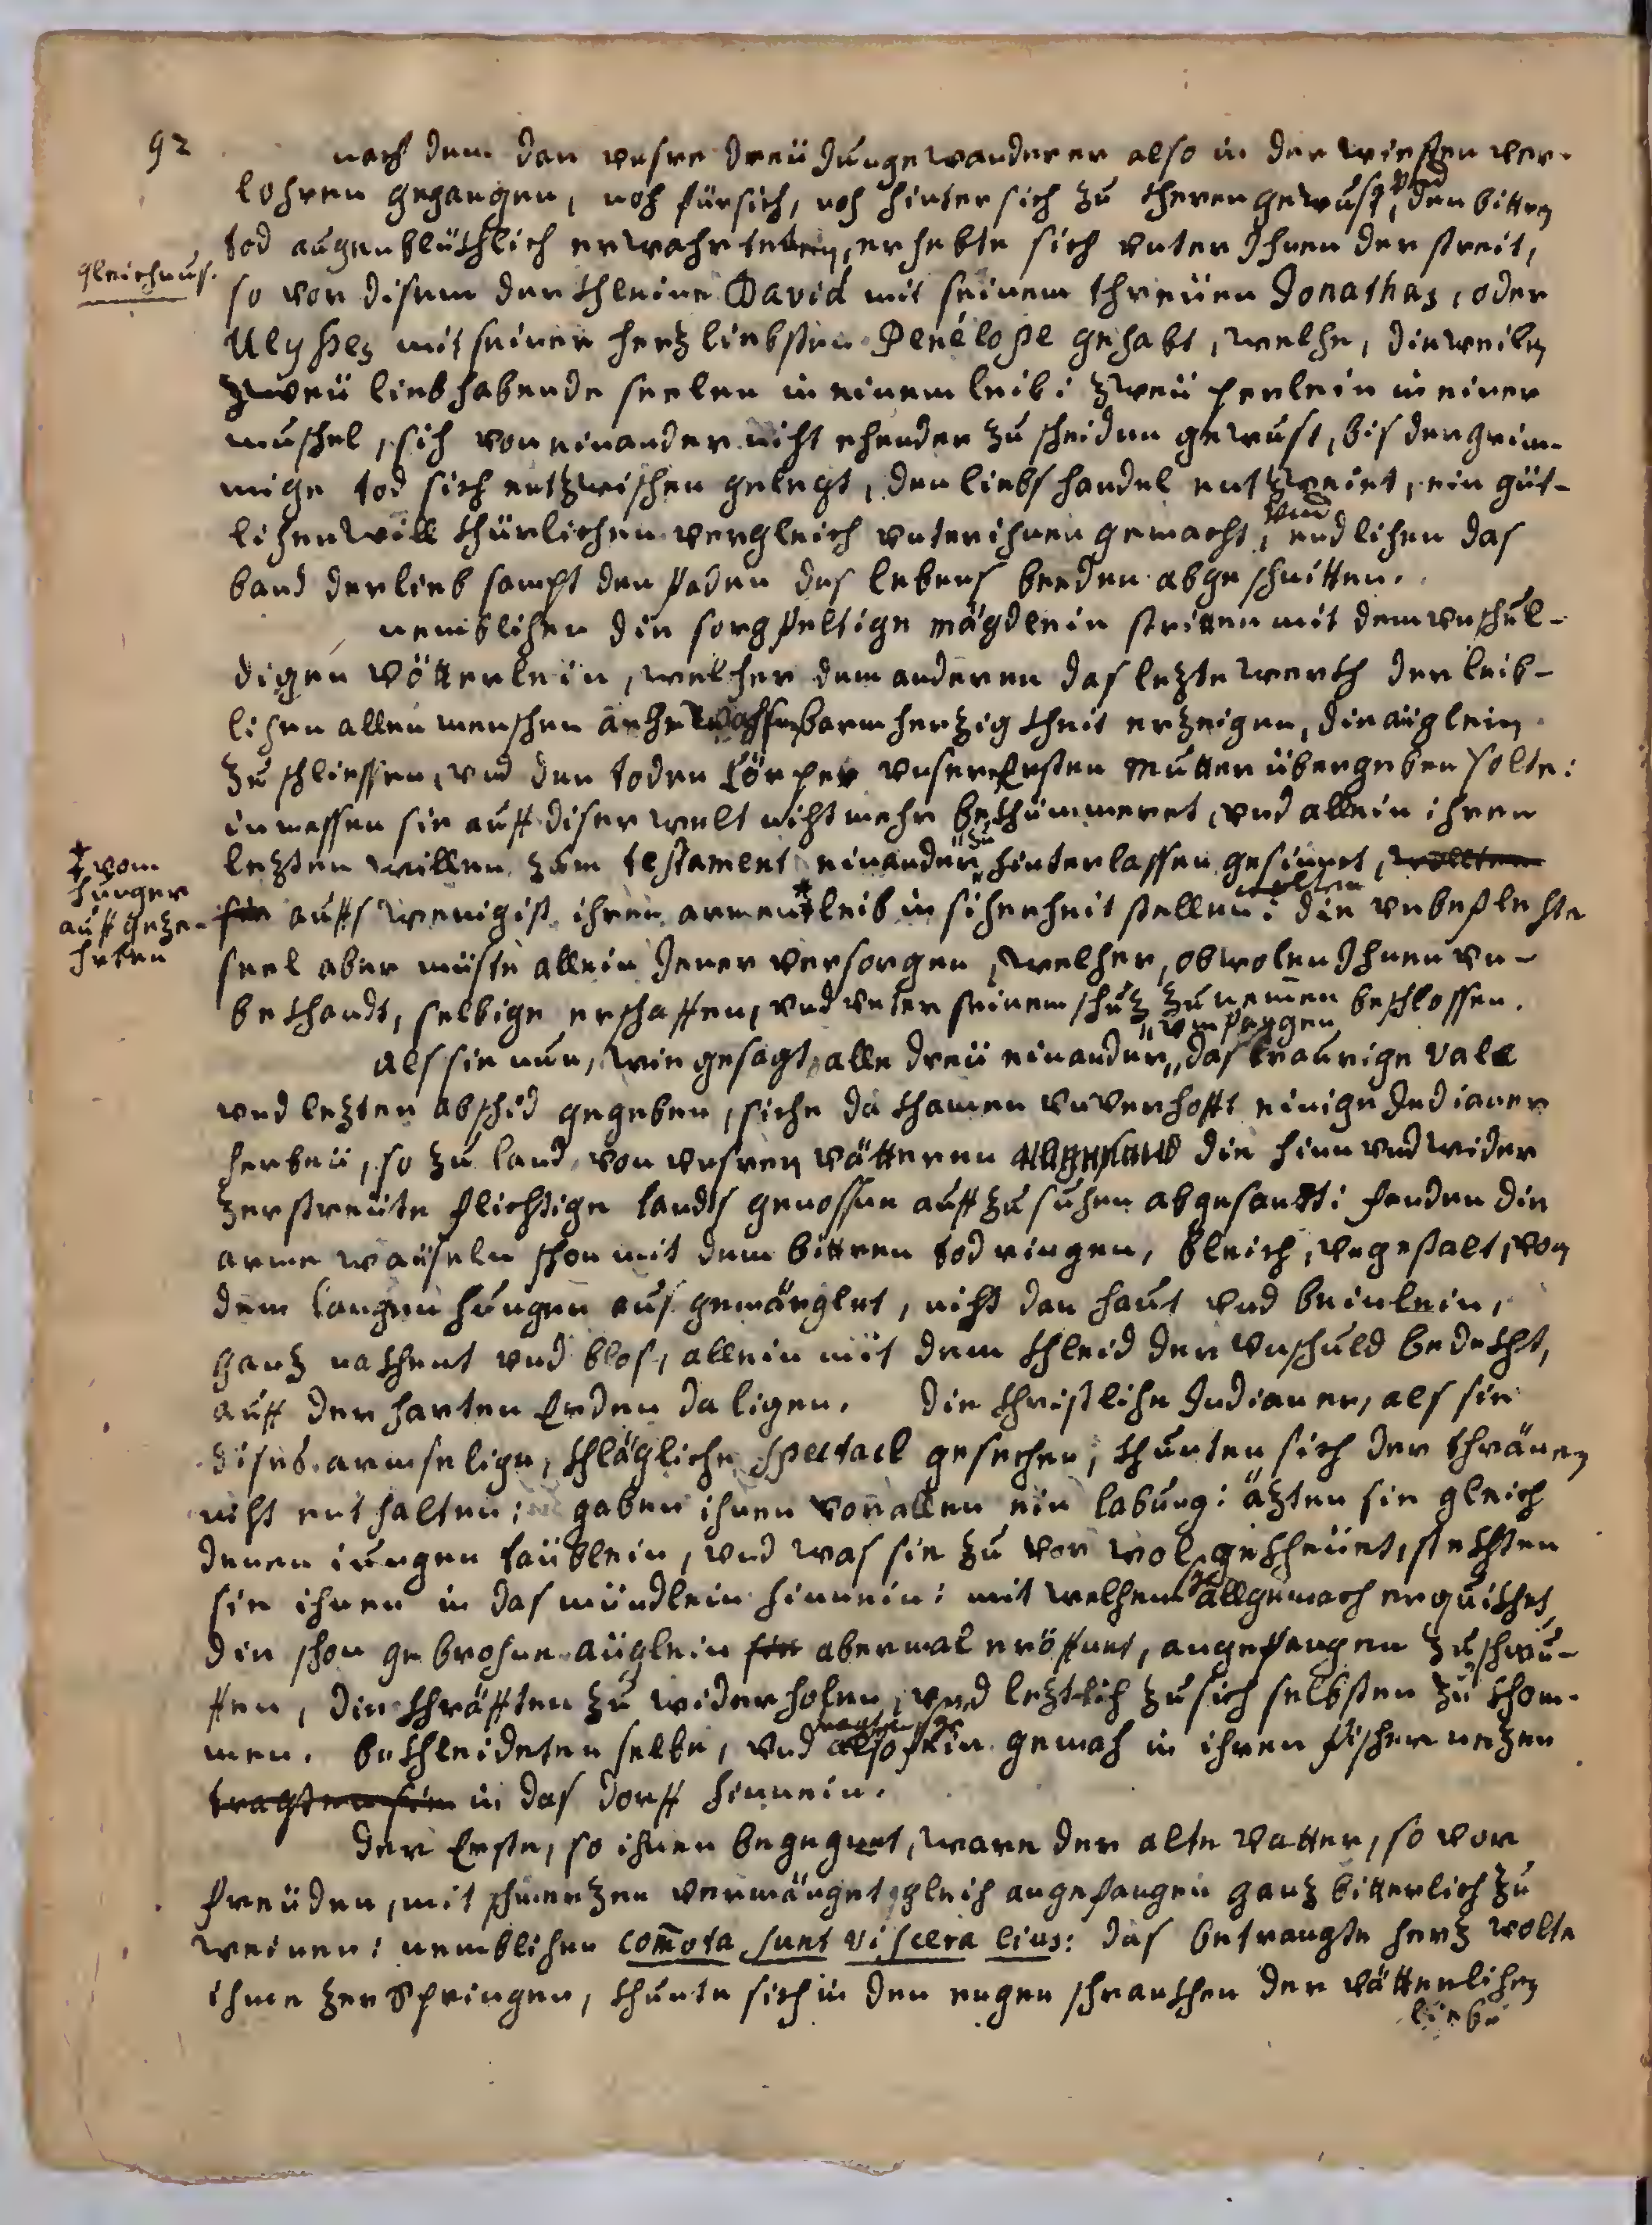 92
nach dem dan unsre dreü Jungewanderer also in der wiesten ver-
lohren gegangen, noch fürsich, noch hintersich zu theren gewust, und den bittren
tod augenblüthlich erwahrteten, erhebte sich unter Ihnen der streit,
gleichnus.
so vor disem der thleine David mit seinem threüen Jonathas, oder
Ulysses mit seiner herzliebsten Penélope gehabt, welche, dieweilen
zweü liebhabende seelen in einem leib: zweü perlein in einer
muschel, sich von einander nicht ehender zu scheiden gewust, bis der grim-
mige tod sich entzwischen gelegt, den liebs handel entzweiet, ein güt-
lichen willthürlichen vergleich unter ihnen gemacht, und endlichen das
band der lieb sampt den faden des lebens beeden abgeschnitten.
nemblichen die sorgfeltige mägdlein stritten mit dem unschul-
digen vötterlein, welcher dem anderen das lezte werth der leib-
lichen allen menschen barmherzigtheit erzeigen, die aüglein
zu schliessen, und den toden Cörper unserer Ersten mutter übergeben solte:
inmassen sie auff diser welt nicht mehr bethümmeret, und allein ihren
lezten willen zum testament einander zu hinterlassen gesinnet, wollten
sie auffs wenigist ihren armen * leib in sicherheit stellen wollten: die unbeflechte
* vom
hunger
auff geze-
hrten
seel aber müste allein Jener versorgen, welcher, obwolen Ihnen un-
bethandt, selbige erschaffen, und unter seinem schuz zu nemen beschlossen.
als sie nun, wie gesagt, alle dreü einander umfaggen das traurige vale
und lezten abschid gegeben, siche da thamen unverhofft einige Indianer
herbeü, so zu land von unsren vätteren die hinn und wider
zerstreüte flichtige landts genossen auff zu suchen abgesandt: fanden die
arme waiseln schon mit dem bittren tod ringen, bleich, ungestalt, von
dem langen hunger ausgemärglet, nicht dan haut und beinlein,
ganz nathent und blos, allein mit dem thleid der unschuld bedetht,
auff der harten Erden da ligen. die thristliche Indianer, als sie
dises armselige, thlägliche spectacl gesechen, thunten sich der thränen
nicht enthalten: gaben ihnen vor allen ein labung: äzten sie gleich
denen iungen taüblein, und was sie zu vor wol getheüet, stethten
sie ihnen in das mündlein hinnein: mit welchem sie allgemach erquithet,
die schon gebrochne aüglein sie abermal eröffnet, angefangen zu schnu-
ffen, die thräfften zu widerholen, und leztlich zu sich selbsten zu thom-
men. bethleideten selbe, und tragten sie also fein gemach in ihren fischer nezen
tragten sie in das dorff hinnein.
der Erste, so ihnen begegnet, ware der alte vatter, so vor
freüden, mit schmerzen vermänget, gleich angefangen ganz bitterlich zu
weinen: nemblichen com̄ota sunt viscera eius: das betrangte herz wolte
ihme zerspringen, thunte sich in den engen schranthen der vätterlichen
liebe